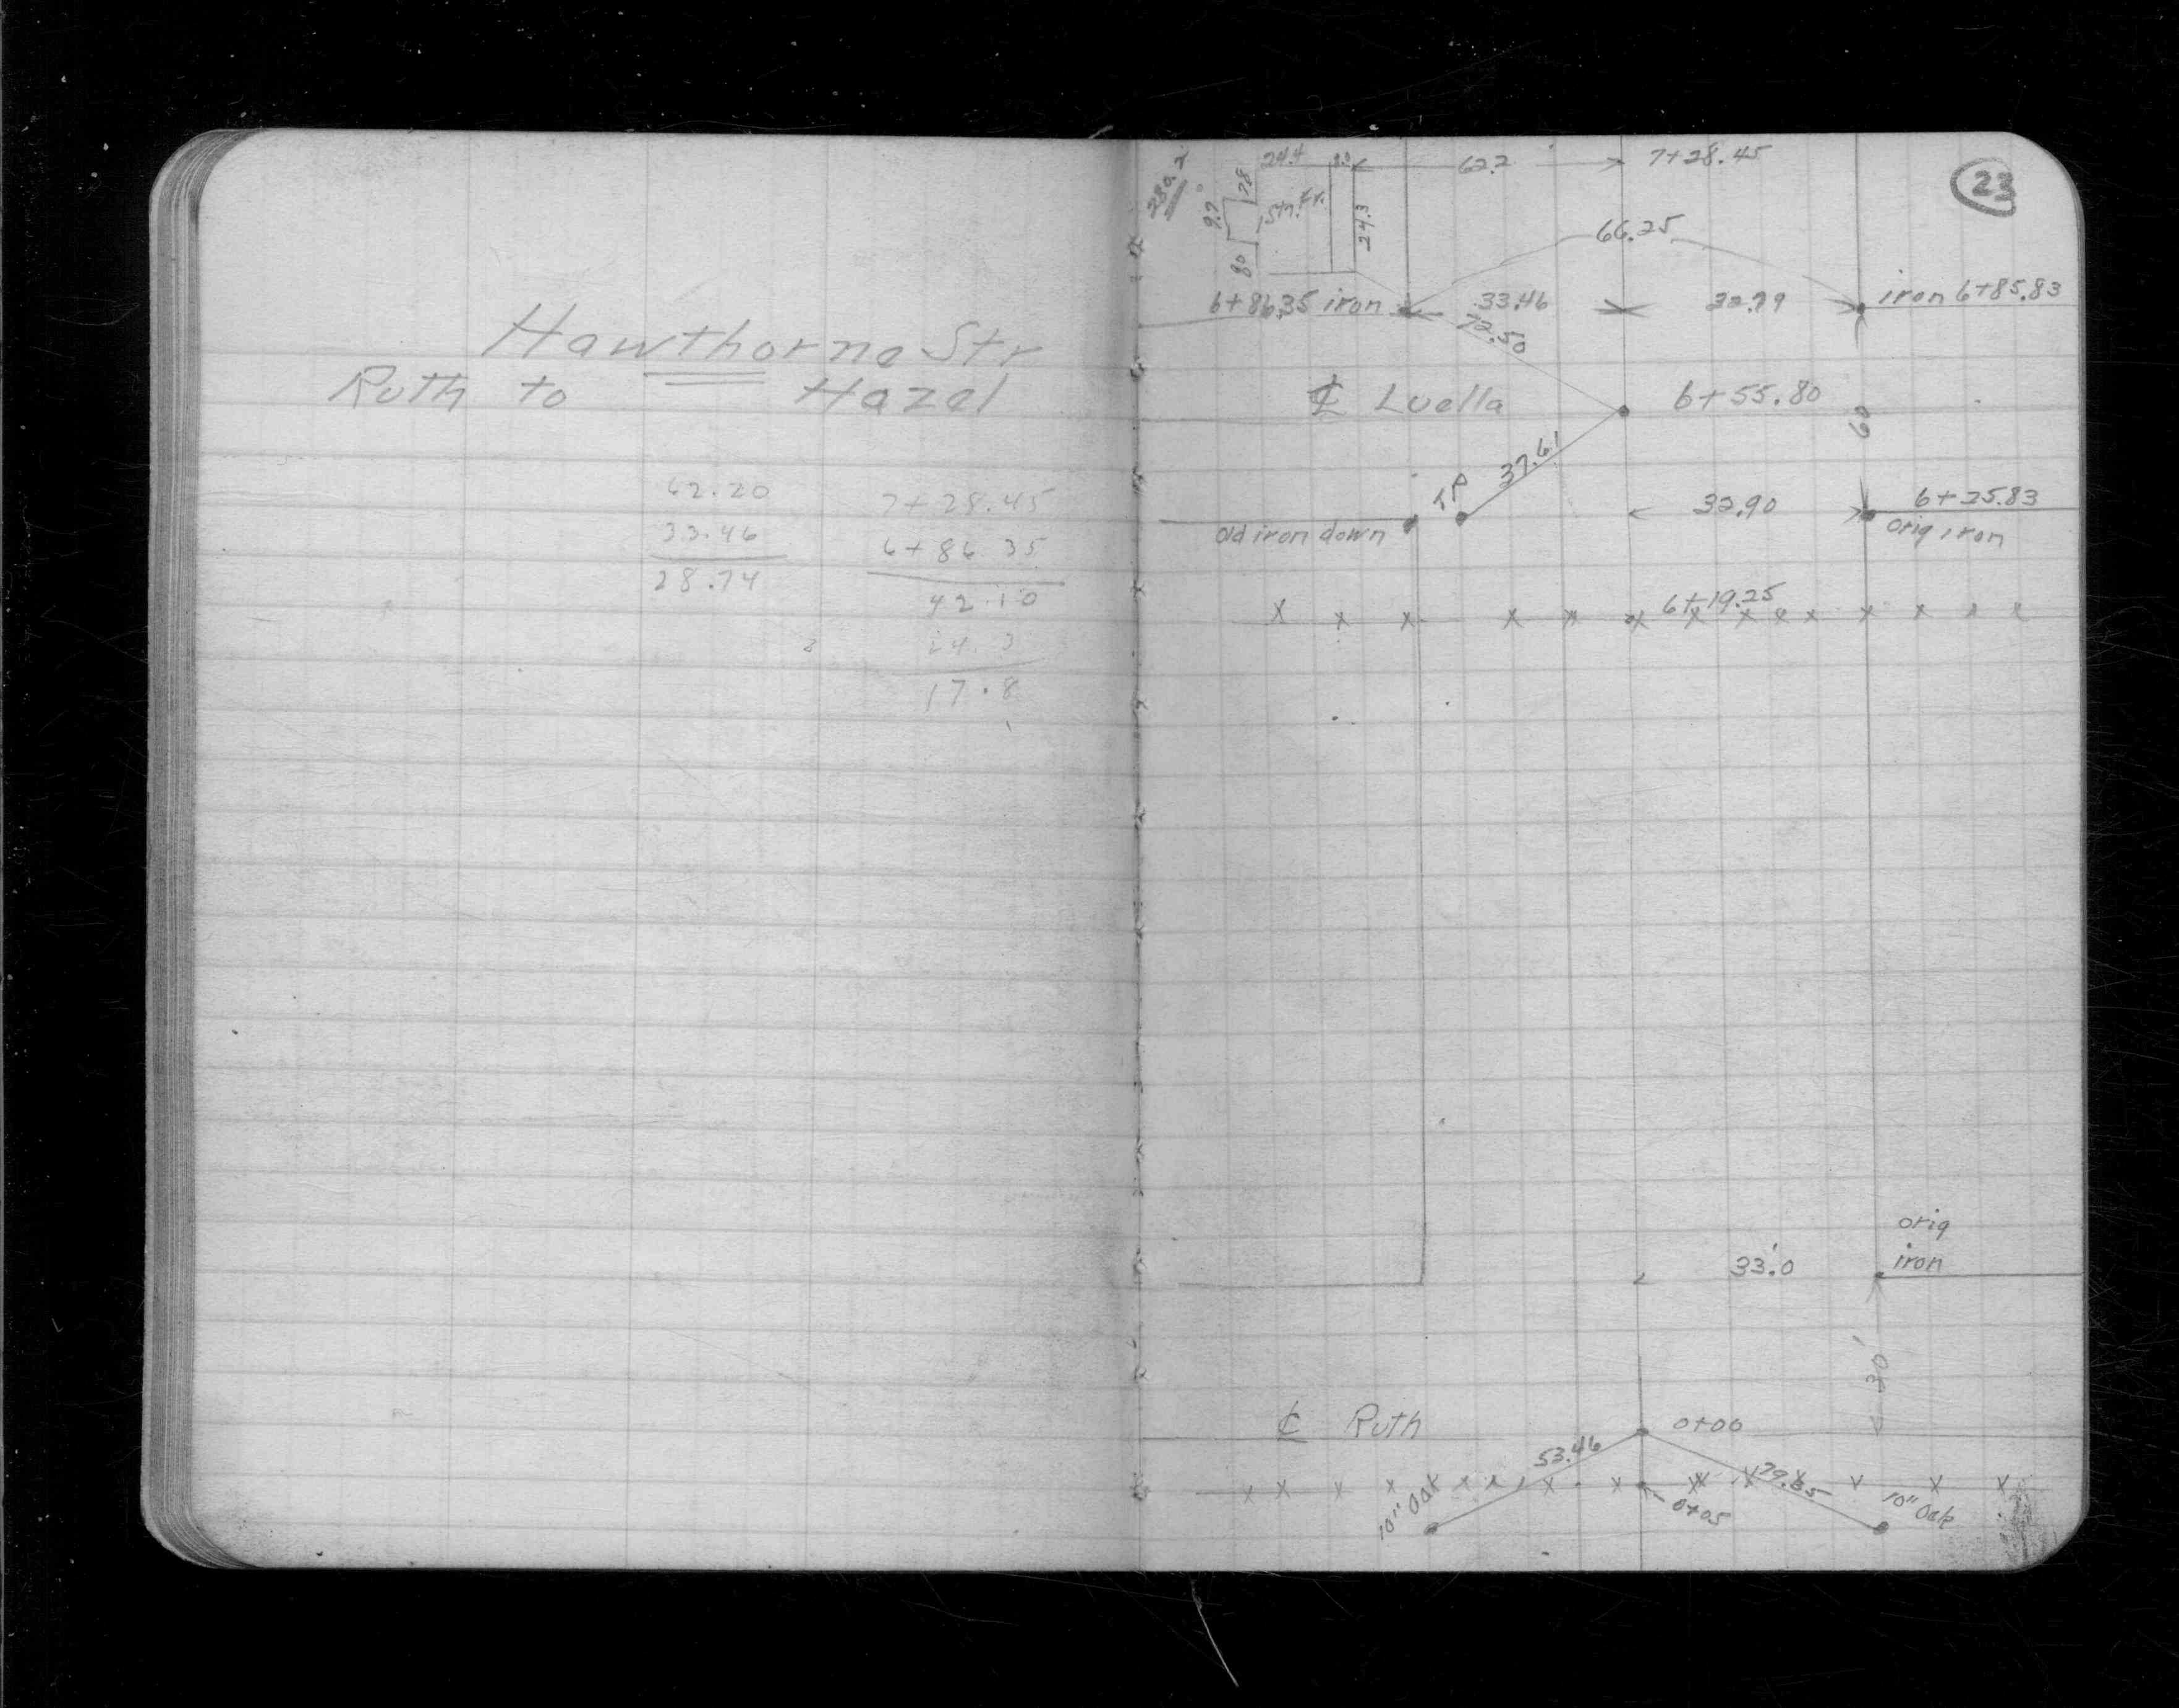 Hawthorne Str
Ruth to Hazel
62.20
33.46
28.74
7+28.45
6+86.35
42.10
24.3
17.8
23
280.2
24.4
8.0
62.2
7+28.45
78
9.7
Stn. Fr.
24.3
80
66.25
6+86.35 iron
33.46
32.79
iron 6+85.83
72.50
℄ Luella
6+55.80
60
37.61
32.90
6+25.83
Old iron down
orig iron
6+19.25
orig
33.0
iron
30'
℄ Ruth
0+00
53.46
79.85
10" Oak
0+05
10" Oak